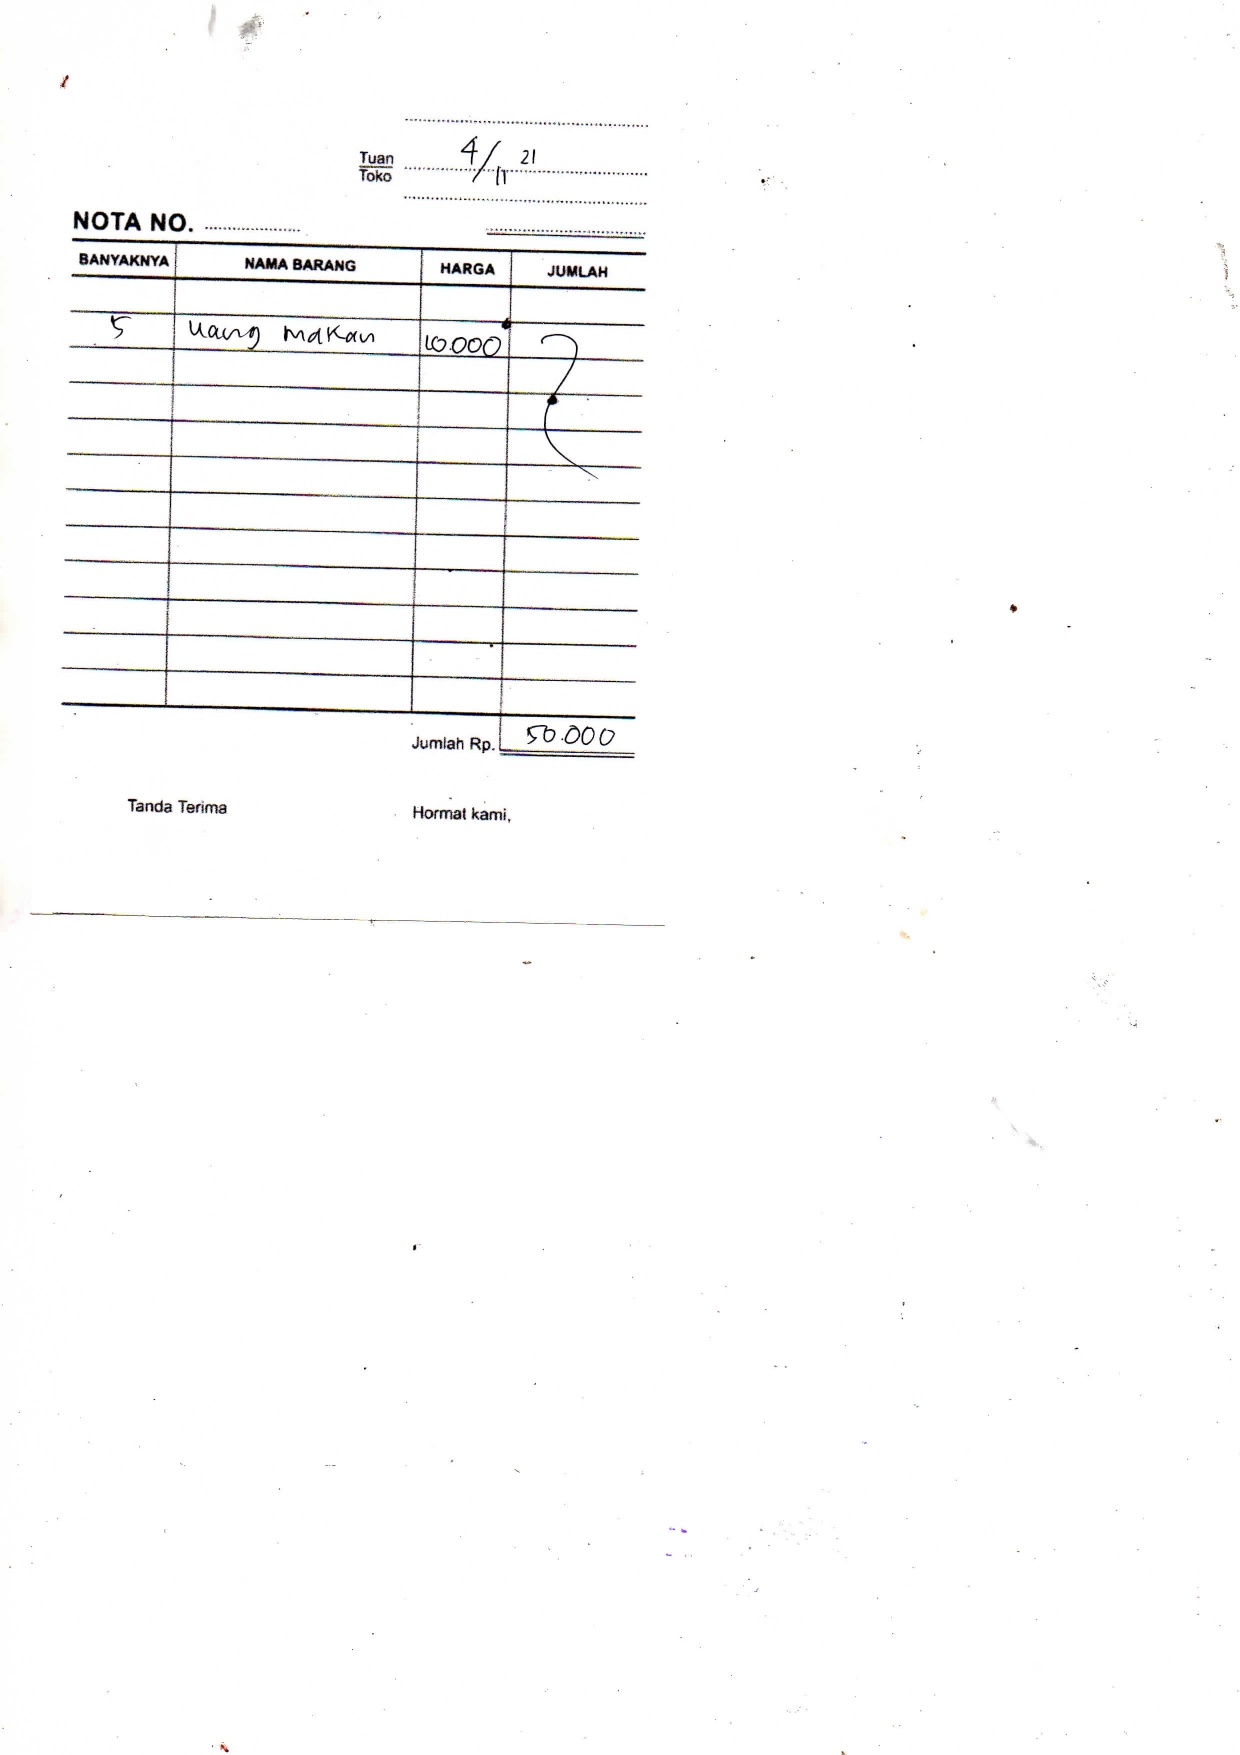 4/11 21
Tuan
Toko
NOTA NO.
BANYAKNYA NAMA BARANG HARGA JUMLAH
5 uang makan 10.000
Jumlah Rp. 50.000
Tanda Terima Hormat kami,